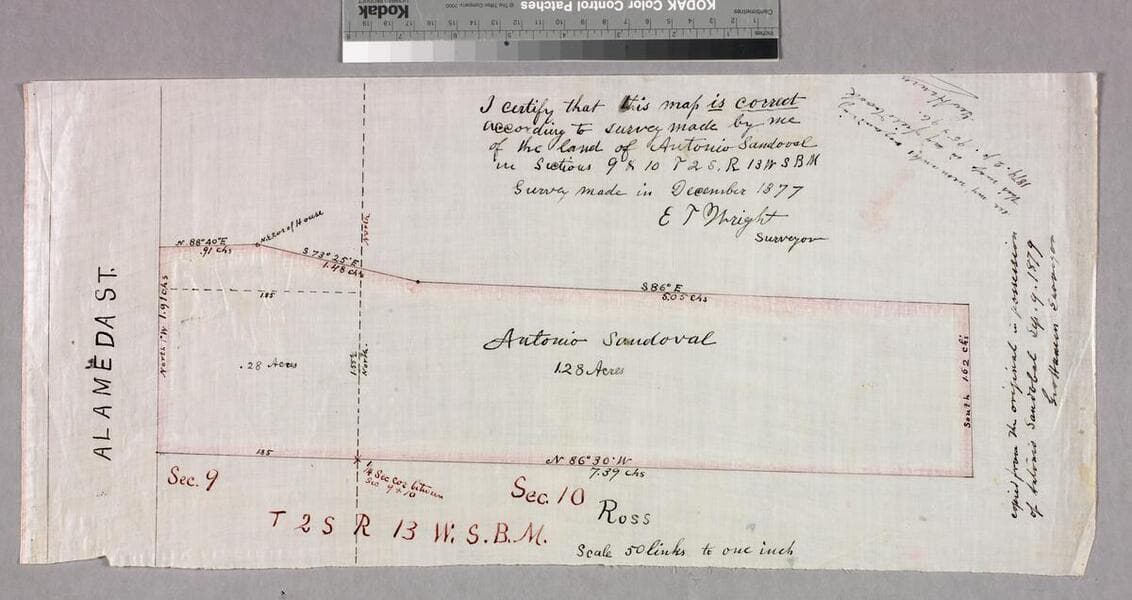 Kodak
KODAK Color Control Patches
© The Tiffen Company, 2000
Centimetres
Inches
I certify that this map is correct
according to survey made by me
of the land of Antonio Sandoval
in Sections 9 & 10 T 2 S, R 13 W S B M
Survey made in December 1877
E T Wright
Surveyor
1879
N 88°40'E
.91 chs
N E cor of House
S 73° 25' E
1.48 chs
North
S 86° E
5.05 chs
185
ALAMEDA ST.
North 1° W 1.91 chs
.28 Acres
North.
Antonio Sandoval
1.28 Acres
South 1.62 ch
185
N 86° 30' W
7.39 chs
Sec. 9
1/4 Sec cor between
Sec 9 & 10
Sec. 10
Ross
T 2 S R 13 W. S.B.M.
Scale 50 links to one inch
copied from the original in possession
of Antonio Sandobal Sep. 9. 1879
Geo Hansen Surveyor